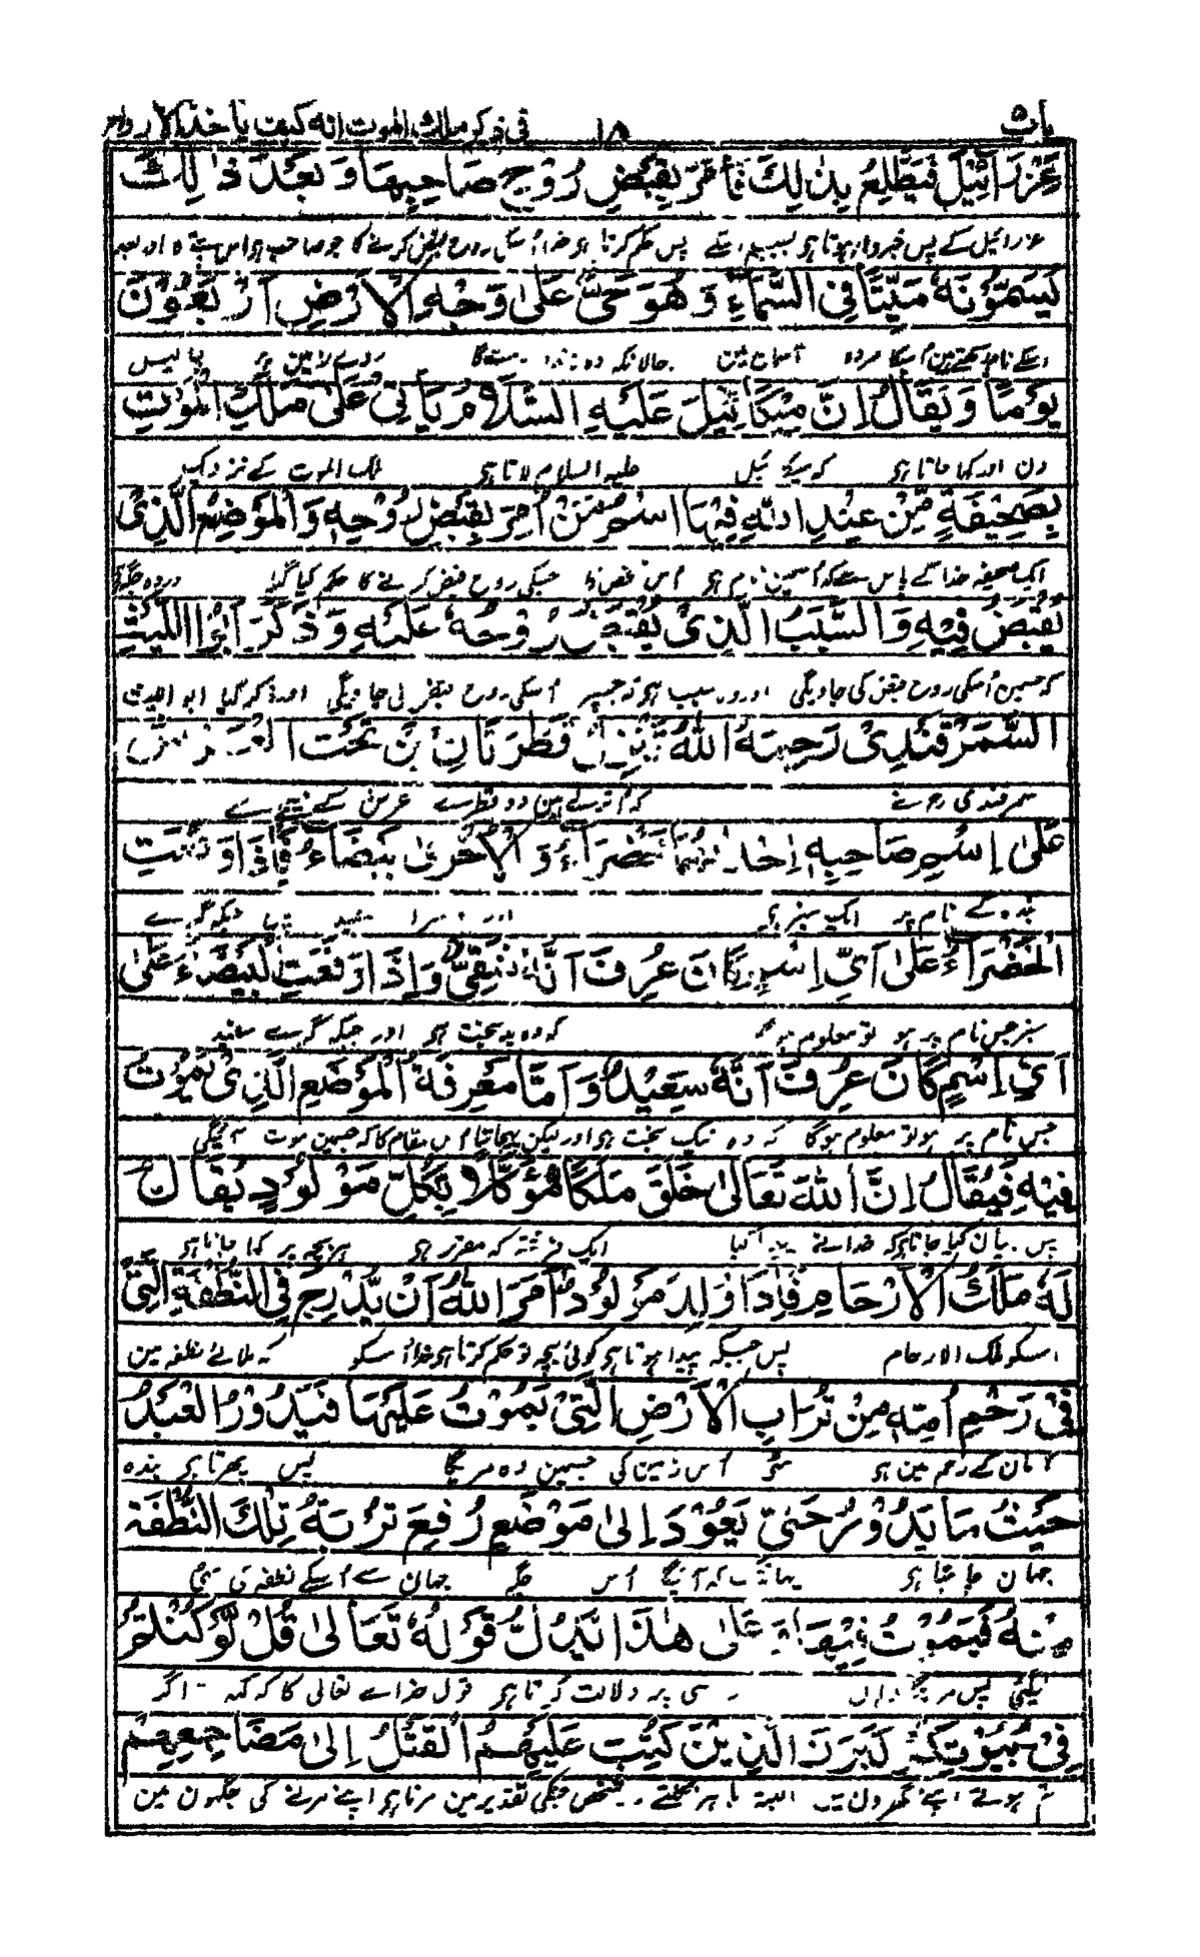 باب ١٨ فی ذکر ملك الموت انه کیف یأخذ الارواح
عَزْرَائِيْلَ فَيَطَّلِعُ بِذٰلِكَ فَأُمِرَ بِقَبْضِ رُوْحِ صَاحِبِهَا وَبَعْدَ ذٰلِكَ
عزرائیل کے پس خبردار ہوتا ہے بسبب اسکے پس حکم کرتا ہے خدا اسکی روح قبض کرنے کا جو صاحب ہو اس پتہ کا اور بعد
يُسَمُّوْنَهُ مَيِّتًا فِي السَّمَاءِ وَهُوَ حَيٌّ عَلٰى وَجْهِ الْاَرْضِ اَرْبَعُوْنَ
اسکے نام رکھتے ہین اسکا مردہ آسمان مین حالانکہ وہ زندہ روے زمین پر چالیس
يَوْمًا وَيُقَالُ اِنَّ مِيْكَائِيْلَ عَلَيْهِ السَّلَامُ يَأْتِيْ عَلٰى مَلَكِ الْمَوْتِ
دن اور کہا جاتا ہے کہ میکائیل علیہ السلام لاتا ہے ملک الموت کے نزدیک
بِصَحِيْفَةٍ مِّنْ عِنْدِ اللّٰهِ فِيْهَا اسْمُ مَنْ اُمِرَ بِقَبْضِ رُوْحِهٖ وَالْمَوْضِعُ الَّذِيْ
ایک صحیفہ خدا کے پاس سے کہ اسمین نام ہو اس شخص کا جسکی روح قبض کرنے کا حکم کیا گیا اور وہ جگہ
يُقْبَضُ فِيْهِ وَالسَّبَبُ الَّذِيْ يُقْبَضُ رُوْحُهُ عَلَيْهِ وَذَكَرَ اَبُو اللَّيْثِ
کہ جسمین اسکی روح قبض کی جاویگی اور وہ سبب ہو کہ جسپر اسکی روح قبض کی جاویگی اور ذکر کیا ابو اللیث
السَّمَرْقَنْدِيْ رَحِمَهُ اللّٰهُ تَنْزِلُ قَطْرَتَانِ مِنْ تَحْتِ الْعَرْشِ
سمرقندی رح نے کہ اترتے ہین دو قطرے عرش کے نیچے سے
عَلٰى اِسْمِ صَاحِبِهٖ اِحْدٰىهُمَا خَضْرَاءُ وَالْاُخْرٰى بَيْضَاءُ فَاِذَا وَقَعَتِ
بندہ کے نام پر ایک سبز ہے اور دوسرا سفید جبکہ گرے
الْخَضْرَاءُ عَلٰى اَيِّ اِسْمٍ كَانَ عُرِفَ اَنَّهُ شَقِيٌّ وَاِذَا وَقَعَتِ الْبَيْضَاءُ عَلٰى
سبز جس نام پر ہو تو معلوم ہو کہ وہ بدبخت ہو اور جبکہ گرے سفید
اَيِّ اِسْمٍ كَانَ عُرِفَ اَنَّهُ سَعِيْدٌ وَاَمَّا مَعْرِفَةُ الْمَوْضِعِ الَّذِيْ يَمُوْتُ
جس نام پر ہو تو معلوم ہوگا کہ وہ نیک بخت ہو اور لیکن پہچاننا اس مقام کا کہ جسمین موت آئیگی
فِيْهِ فَيُقَالُ اِنَّ اللّٰهَ تَعَالٰى خَلَقَ مَلَكًا مُؤَكَّلًا بِكُلِّ مَوْلُوْدٍ يُقَالُ
پس بیان کیا جاتا ہے کہ خدا نے پیدا کیا ایک فرشتہ کہ مقرر ہو ہر بچہ پر کہا جاتا ہے
لَهُ مَلَكُ الْاَرْحَامِ فَاِذَا وُلِدَ مَوْلُوْدٌ اَمَرَ اللّٰهُ اَنْ يُّدْرِجَ فِي النُّطْفَةِ الَّتِيْ
اسکو ملک الارحام پس جبکہ پیدا ہوتا ہے کوئی بچہ تو حکم کرتا ہے خدا اسکو کہ ملائے نطفہ مین
فِيْ رَحِمِ اُمِّهٖ مِنْ تُرَابِ الْاَرْضِ الَّتِيْ يَمُوْتُ عَلَيْهَا فَيَدُوْرُ الْعَبْدُ
ماں کے رحم مین ہو مٹی اس زمین کی جسمین وہ مریگا پس پھرتا ہے بندہ
حَيْثُ مَا يَدُوْرُ حَتّٰى يَعُوْدَ اِلٰى مَوْضِعٍ رُفِعَ تُرْبَةُ تِلْكَ النُّطْفَةِ
جہان چاہتا ہے یہانتک کہ آئیگا اس جگہ جہان سے اسکے نطفہ کی مٹی
مِنْهُ فَيَمُوْتُ فِيْهَا عَلٰى هٰذَا يَدُلُّ قَوْلُهُ تَعَالٰى قُلْ لَّوْ كُنْتُمْ
لیگئی پس مریگا وہاں اسی پر دلالت کرتا ہے قول خداے تعالی کا کہ کہہ اگر
فِيْ بُيُوْتِكُمْ لَبَرَزَ الَّذِيْنَ كُتِبَ عَلَيْهِمُ الْقَتْلُ اِلٰى مَضَاجِعِهِمْ
تم ہوتے اپنے گھرون مین البتہ باہر نکلتے شخص جنکی تقدیر مین مرنا ہو اپنے مرنے کی جگہون مین